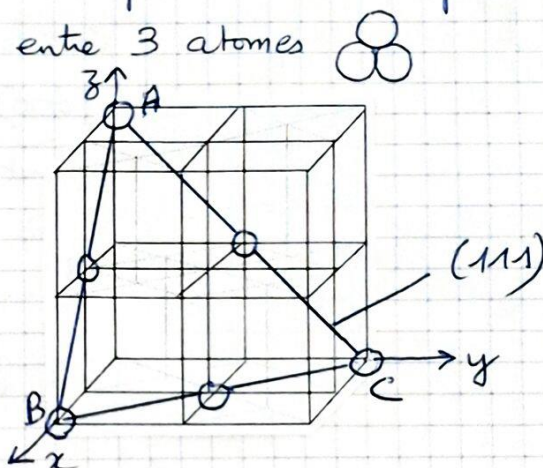 entre 3 atomes
z
A
(111)
y
C
B
x